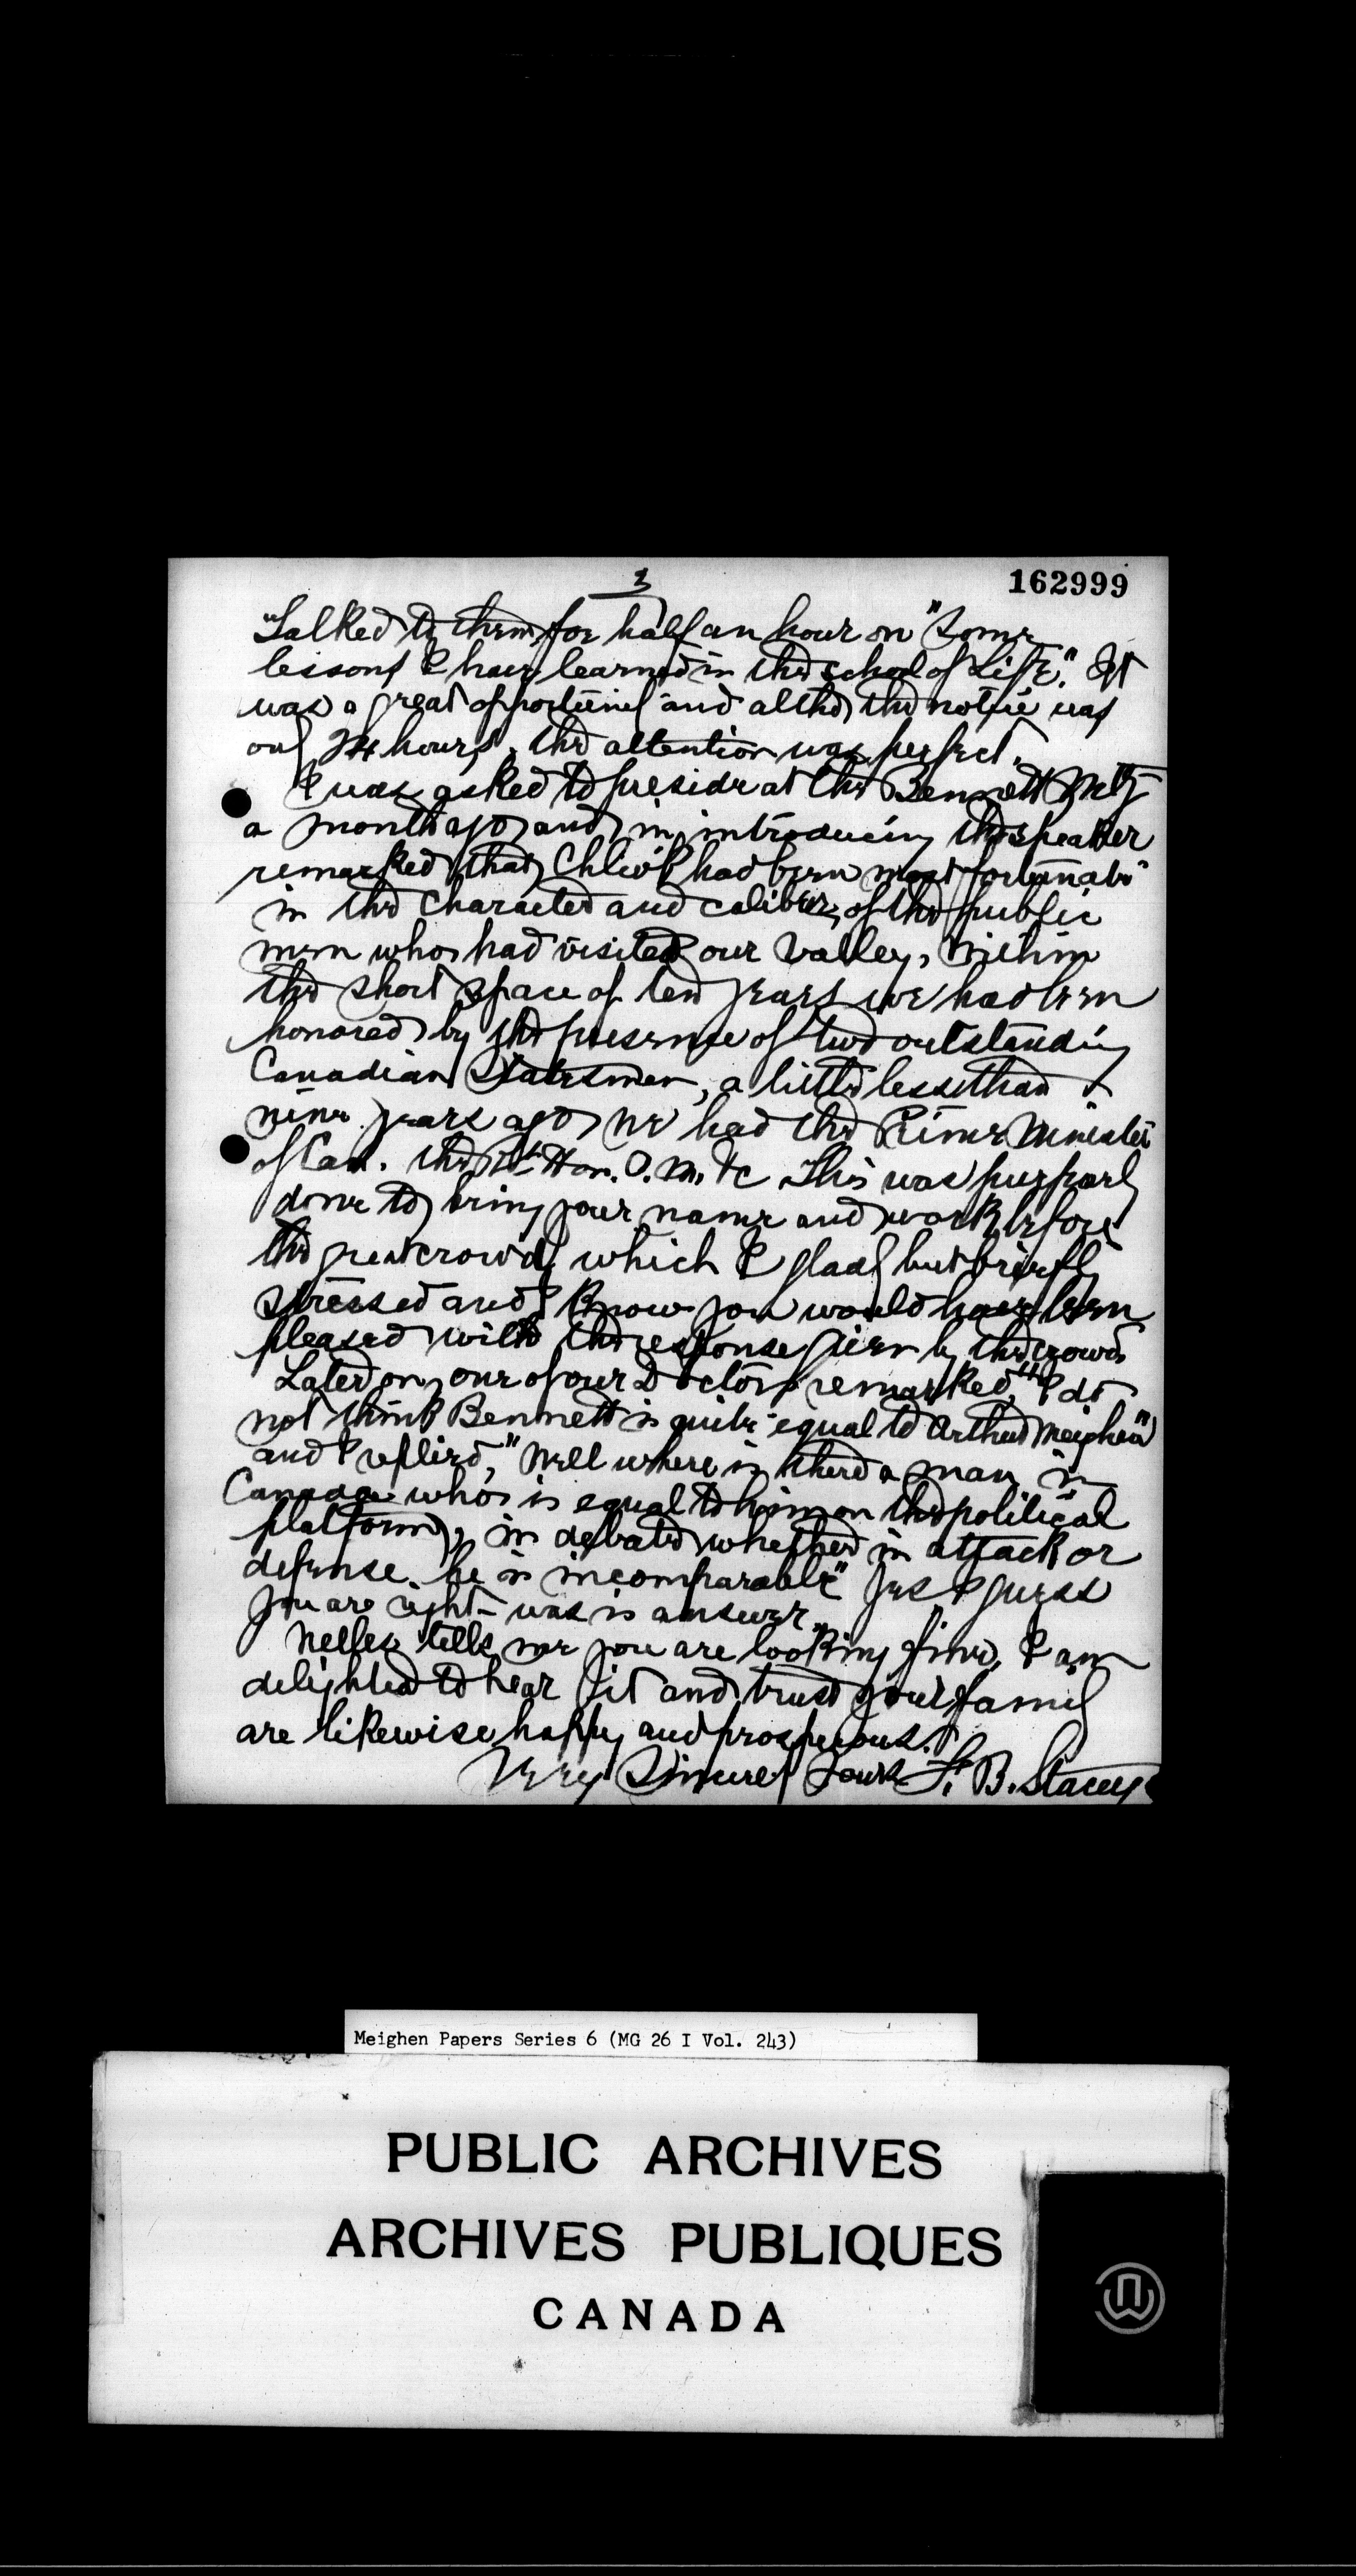 3
162999
Talked to them for half an hour on "Some
lessons I have learned in the school of Life." It
was a great opportunity and altho the notice was
only 24 hours, the attention was perfect.
I was asked to preside at the Bennett Mtg
a month ago and in introducing the speaker
remarked that Chliwk had been most fortunate
in the character and calibre of the public
men who had visited our Valley, Within
the short space of ten years we had been
honored by the presence of two outstanding
Canadian Statesmen, a little less than
nine years ago we had the Prime Minister
of Can. the Rt Hon. A. M. &c This was purposely
done to bring your name and work before
the great crowd, which I gladly but briefly
stressed and I know you would have been
pleased with the response given by the crowd
Later on, one of our Doctors remarked, "I do
not think Bennett is quite equal to Arthur Meighen"
and I replied, "Well where is there a man in
Canada who is equal to him on the political
platform, in debate whether in attack or
defense he is incomparable" Yes I guess
you are right - was is answer.
tells me you are looking fine. I am
delighted to hear it and trust your family
are likewise happy and prosperous.
Very Sincerely Yours F. B. Stacey
Meighen Papers Series 6 (MG 26 I Vol. 243)
PUBLIC ARCHIVES
ARCHIVES PUBLIQUES
CANADA